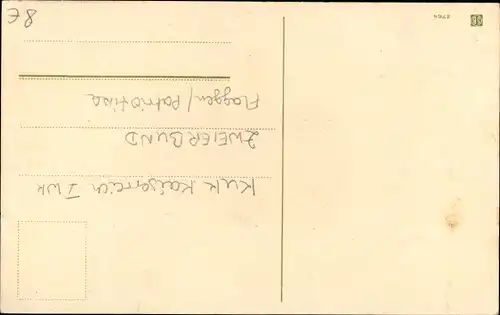 KuK Kaiserreich I WK
ZWEIERBUND
Flaggen/Patriotika
8€
2764